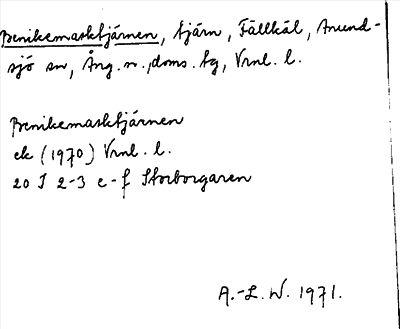 Benikemasktjärnen, tjärn, Fällkäl, Anund-
sjö sn, Ång. n., doms. tg, Vrnl. l.
Benikemasktjärnen
ek (1970) Vrnl. l.
20 I 2-3 e-f Storborgaren
A.-L. W. 1971.